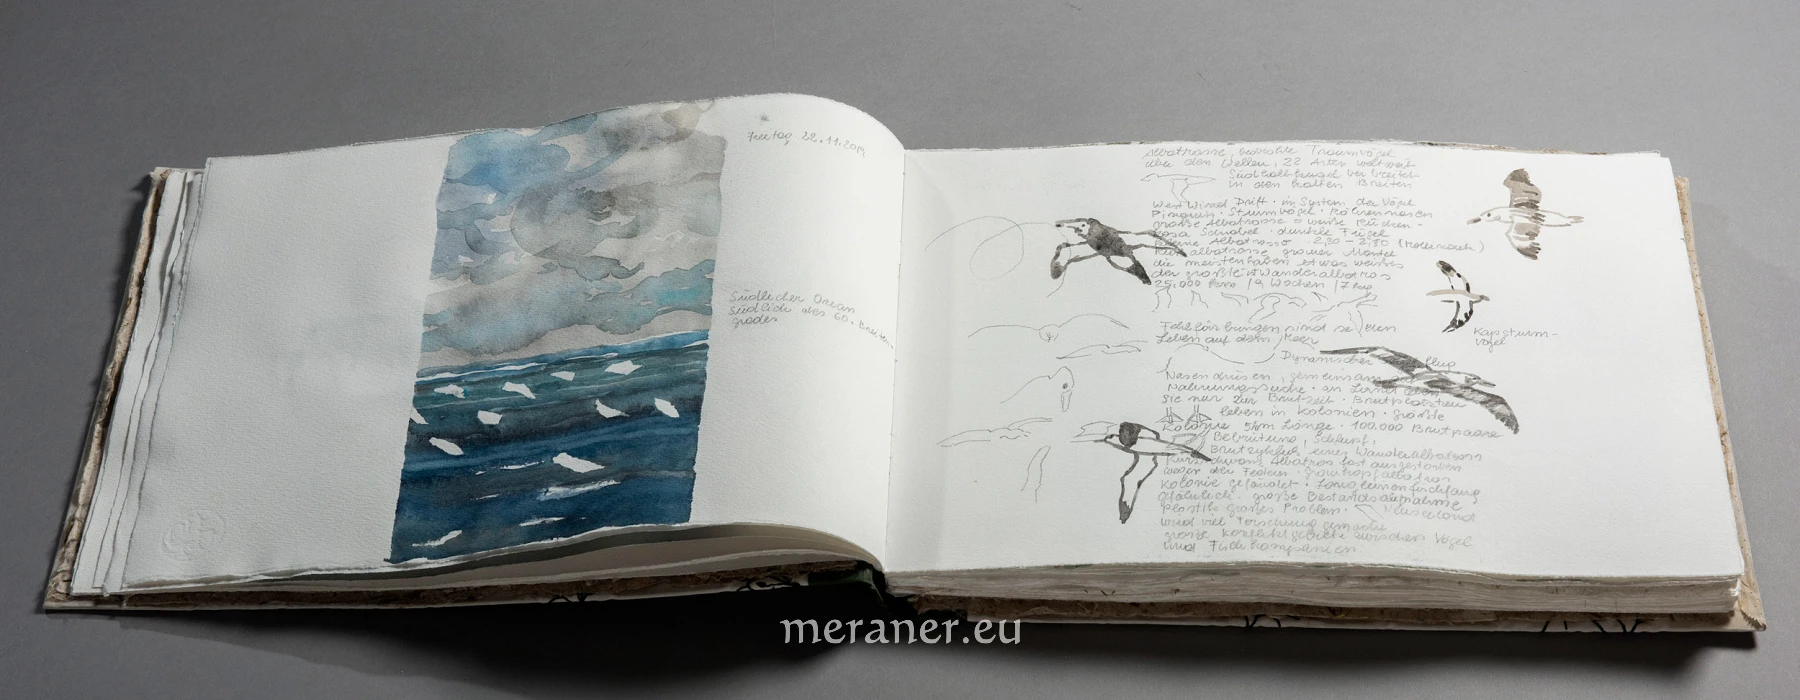 Freitag 22.11.2019
Südlicher Ozean
südlich des 60. Breiten-
grades
Albatrosse, Traumvögel
über den Wellen, 22 Arten weltweit
Südhalbkugel verbreitet
in den kalten Breiten
West Wind Drift · im System der Vögel
Pinguin · Sturmvögel · Röhrennasen
große Albatrosse = weiße Rücken-
rosa Schnabel · dunkle Flügel
kleine Albatrosse 2,30 –
albatrosse grauer Mantel
die meisten haben etwas weißes
der größte ist Wanderalbatros
25.000 / 9 Wochen / 7
Kapsturm-
vogel
Fehlfärbungen sind selten
Leben auf dem Meer
Dynamischer flug
Nasendrüsen, gemeinsam
Nahrungssuche · an Land leben
sie nur zur Brutzeit · Brutplatztreu
leben in Kolonien · größte
Kolonie 5km Länge · 100.000 Brutpaare
Bebrütung, Schlupf,
Brutzyklus eines Wanderalbatros
Kurzschwanz Albatros fast ausgestorben
wegen der Federn · graukopfalbatros
Kolonie gefährdet
gefährlich · große Bestandsaufnahme
Plastik großes Problem · Neuseeland
wird viel Forschung gemacht
große Konfliktgebiete zwischen Vögel
und
meraner.eu